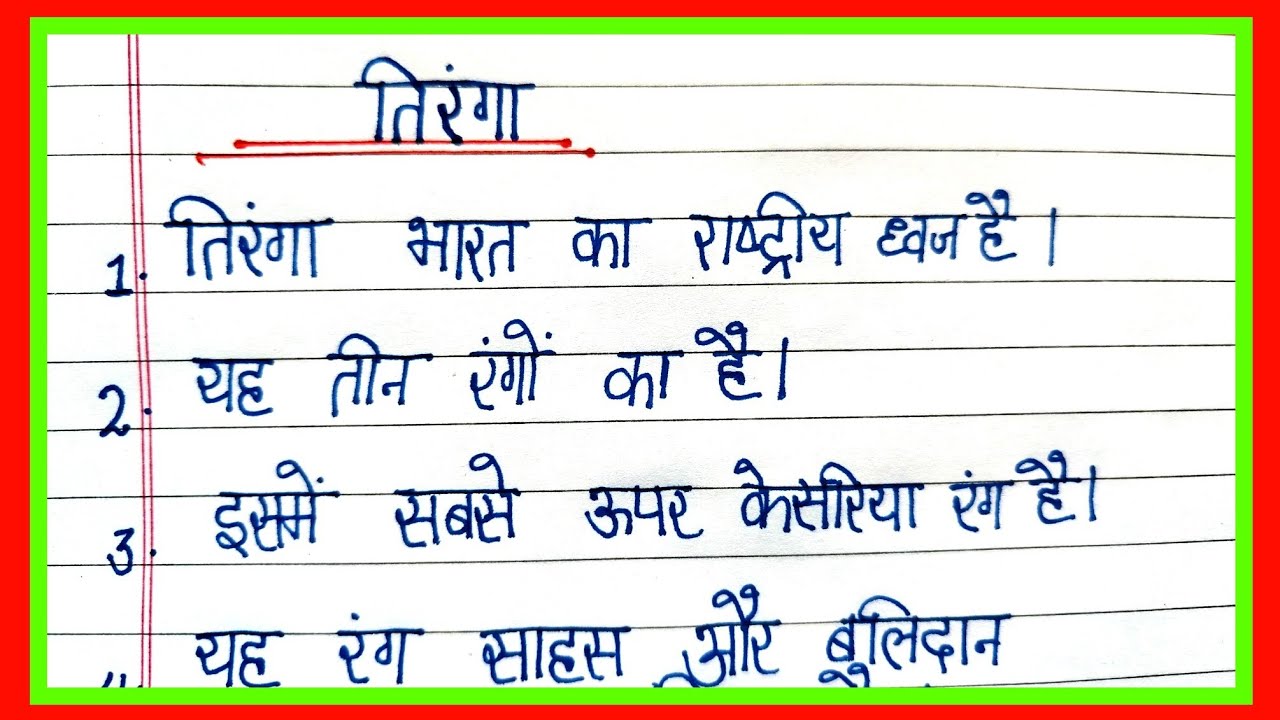 तिरंगा
1. तिरंगा भारत का राष्ट्रीय ध्वज है।
2. यह तीन रंगों का है।
3. इसमें सबसे ऊपर केसरिया रंग है।
यह रंग साहस और बलिदान